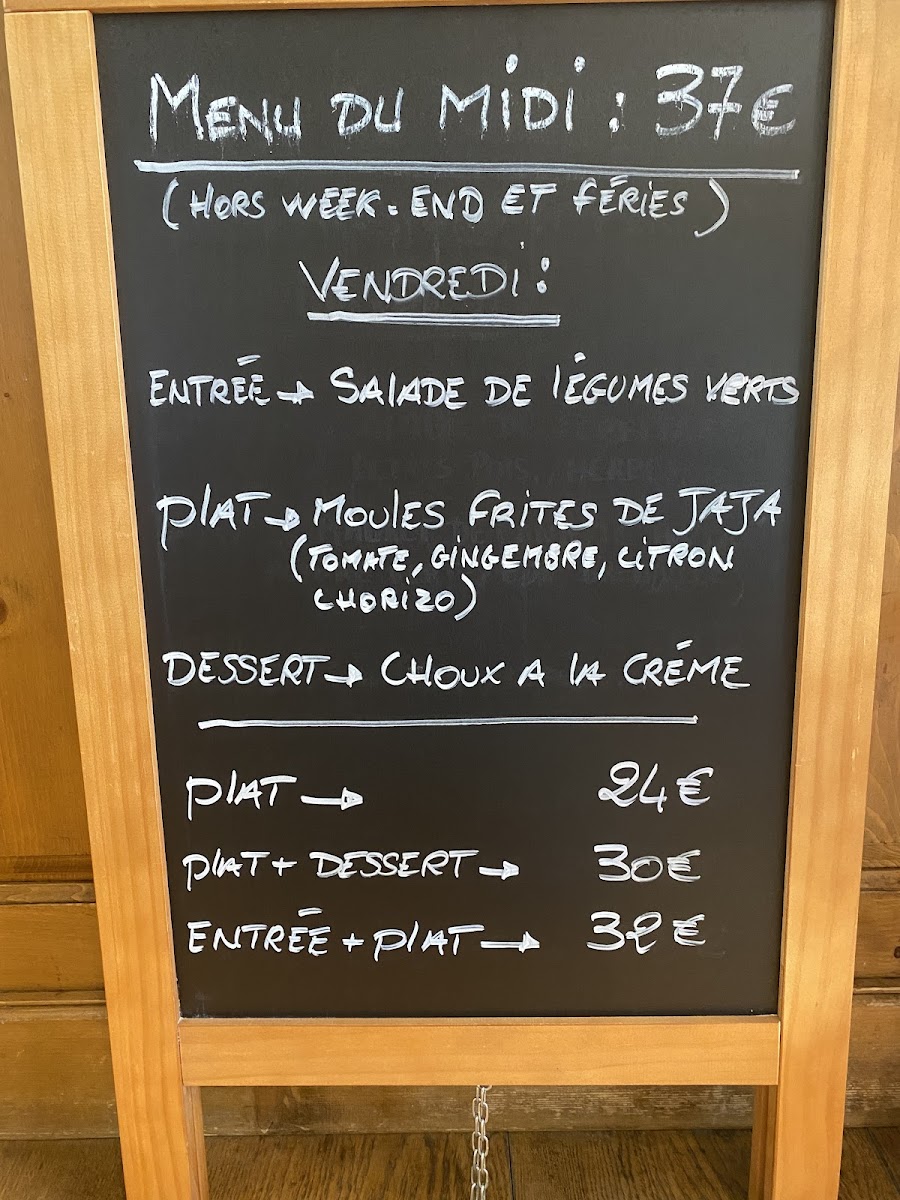 MENU DU MIDI : 37€
(HORS WEEK-END ET FÉRIES)
VENDREDI :
ENTRÉE → SALADE DE LÉGUMES VERTS
PLAT → MOULES FRITES DE JAJA
(TOMATE, GINGEMBRE, CITRON
CHORIZO)
DESSERT → CHOUX A LA CRÉME
PLAT → 24€
PLAT + DESSERT → 30€
ENTRÉE + PLAT → 32€